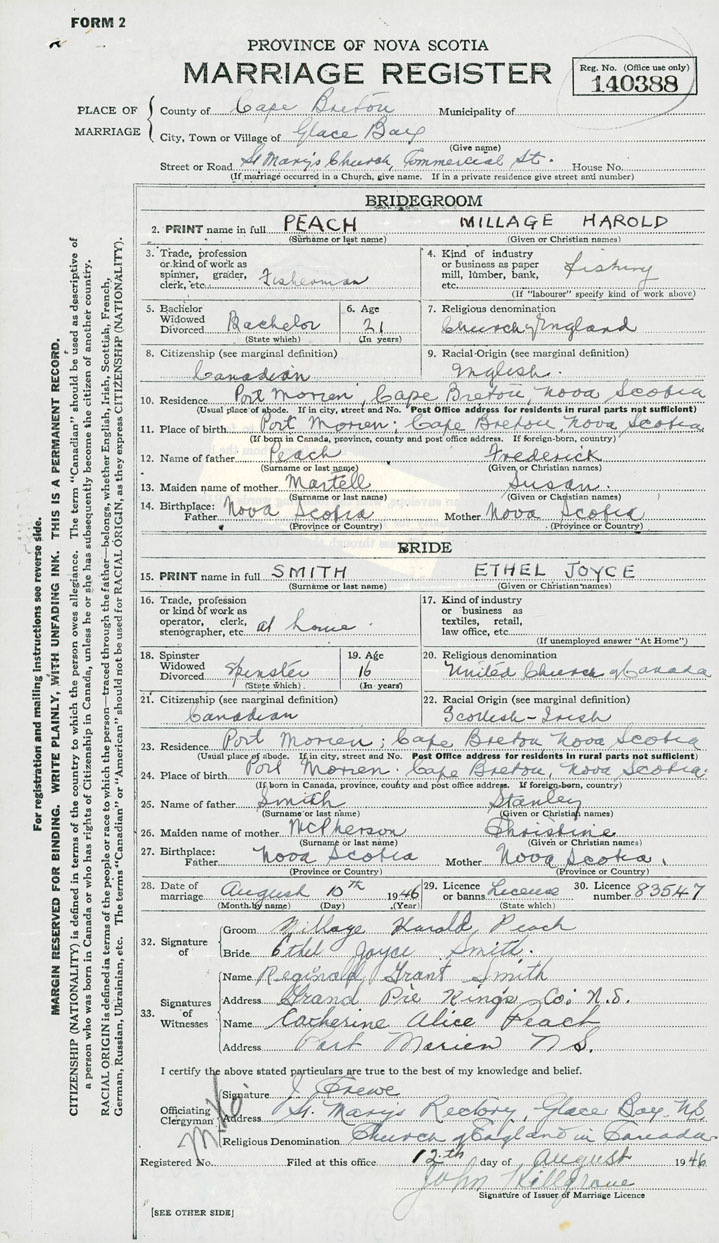 FORM 2
PROVINCE OF NOVA SCOTIA
MARRIAGE REGISTER
Reg. No. (Office use only)
140388
PLACE OF MARRIAGE
County of Cape Breton Municipality of
City, Town or Village of Glace Bay
(Give name)
Street or Road St Mary's Church, Commercial St. House No.
(If marriage occurred in a Church, give name. If in a private residence give street and number)
BRIDEGROOM
2. PRINT name in full PEACH MILLAGE HAROLD
(Surname or last name) (Given or Christian names)
3. Trade, profession or kind of work as spinner, grader, clerk, etc. Fisherman
4. Kind of industry or business as paper mill, lumber, bank, etc. fishing
(If "labourer" specify kind of work above)
5. Bachelor Widowed Divorced Bachelor
(State which)
6. Age 21
(In years)
7. Religious denomination
Church of England
8. Citizenship (see marginal definition)
Canadian
9. Racial Origin (see marginal definition)
English.
10. Residence Port Morien, Cape Breton, Nova Scotia
(Usual place of abode. If in city, street and No. Post Office address for residents in rural parts not sufficient)
11. Place of birth Port Morien; Cape Breton, Nova Scotia
(If born in Canada, province, county and post office address. If foreign-born, country)
12. Name of father Peach Frederick
(Surname or last name) (Given or Christian names)
13. Maiden name of mother Martell Susan.
(Surname or last name) (Given or Christian names)
14. Birthplace: Father Nova Scotia Mother Nova Scotia
(Province or Country) (Province or Country)
BRIDE
15. PRINT name in full SMITH ETHEL JOYCE
(Surname or last name) (Given or Christian names)
16. Trade, profession or kind of work as operator, clerk, stenographer, etc. at home.
17. Kind of industry or business as textiles, retail, law office, etc.
(If unemployed answer "At Home")
18. Spinster Widowed Divorced Spinster
(State which)
19. Age 16
(In years)
20. Religious denomination
United Church of Canada
21. Citizenship (see marginal definition)
Canadian
22. Racial Origin (see marginal definition)
Scottish-Irish
23. Residence Port Morien; Cape Breton Nova Scotia
(Usual place of abode. If in city, street and No. Post Office address for residents in rural parts not sufficient)
24. Place of birth Port Morien. Cape Breton, Nova Scotia.
(If born in Canada, province, county and post office address. If foreign-born, country)
25. Name of father Smith Stanley
(Surname or last name) (Given or Christian names)
26. Maiden name of mother McPherson Christine
(Surname or last name) (Given or Christian names)
27. Birthplace: Father Nova Scotia Mother Nova Scotia.
(Province or Country) (Province or Country)
28. Date of marriage August 10th 1946
(Month by name) (Day) (Year)
29. Licence or banns License
(State which)
30. Licence number 83547
32. Signature of
Groom Millage Harold Peach
Bride Ethel Joyce Smith.
33. Signatures of Witnesses
Name Reginald Grant Smith
Address Grand Pré Kings Co: N.S.
Name Catherine Alice Peach
Address Port Morien N S.
I certify the above stated particulars are true to the best of my knowledge and belief.
Officiating Clergyman
Signature J. Frewe
Address St. Mary's Rectory, Glace Bay NS
Religious Denomination Church of England in Canada
Registered No. Filed at this office 12th day of August 1946
John
Signature of Issuer of Marriage Licence
[SEE OTHER SIDE]
For registration and mailing instructions see reverse side.
MARGIN RESERVED FOR BINDING. WRITE PLAINLY, WITH UNFADING INK. THIS IS A PERMANENT RECORD.
CITIZENSHIP (NATIONALITY) is defined in terms of the country to which the person owes allegiance. The term "Canadian" should be used as descriptive of
a person who was born in Canada or who has rights of Citizenship in Canada, unless he or she has subsequently become the citizen of another country.
RACIAL ORIGIN is defined in terms of the people or race to which the person—traced through the father—belongs, whether English, Irish, Scottish, French,
German, Russian, Ukrainian, etc. The terms "Canadian" or "American" should not be used for RACIAL ORIGIN, as they express CITIZENSHIP (NATIONALITY).